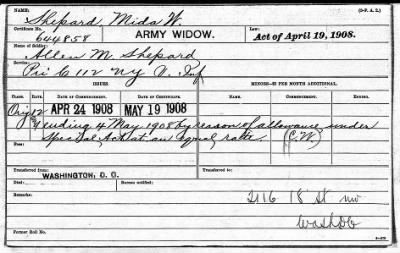 NAME:
Shepard, Mida W. (3-P. A. 2.)
Certificate No.
644858 ARMY WIDOW. Law: Act of April 19, 1908.
Name of Soldier:
Allen M. Shepard
Service:
Pri C 112 NY V. Inf
ISSUES. MINORS—$2 PER MONTH ADDITIONAL.
CLASS. RATE. DATE OF COMMENCEMENT. DATE OF CERTIFICATE. DATE OF COMMENCEMENT. DATE OF COMMENCEMENT.
Orig 12 APR 24 1908 MAY 19 1908
ending 4 May 1908 by reason of allowance under
Special Act at an equal rate. (C.W.)
Fees:
Transferred from Transferred from
WASHINGTON, D. C.
Died: Bureau notified:
Remarks: 2116 18 St nw
Wash DC
Former Roll No.